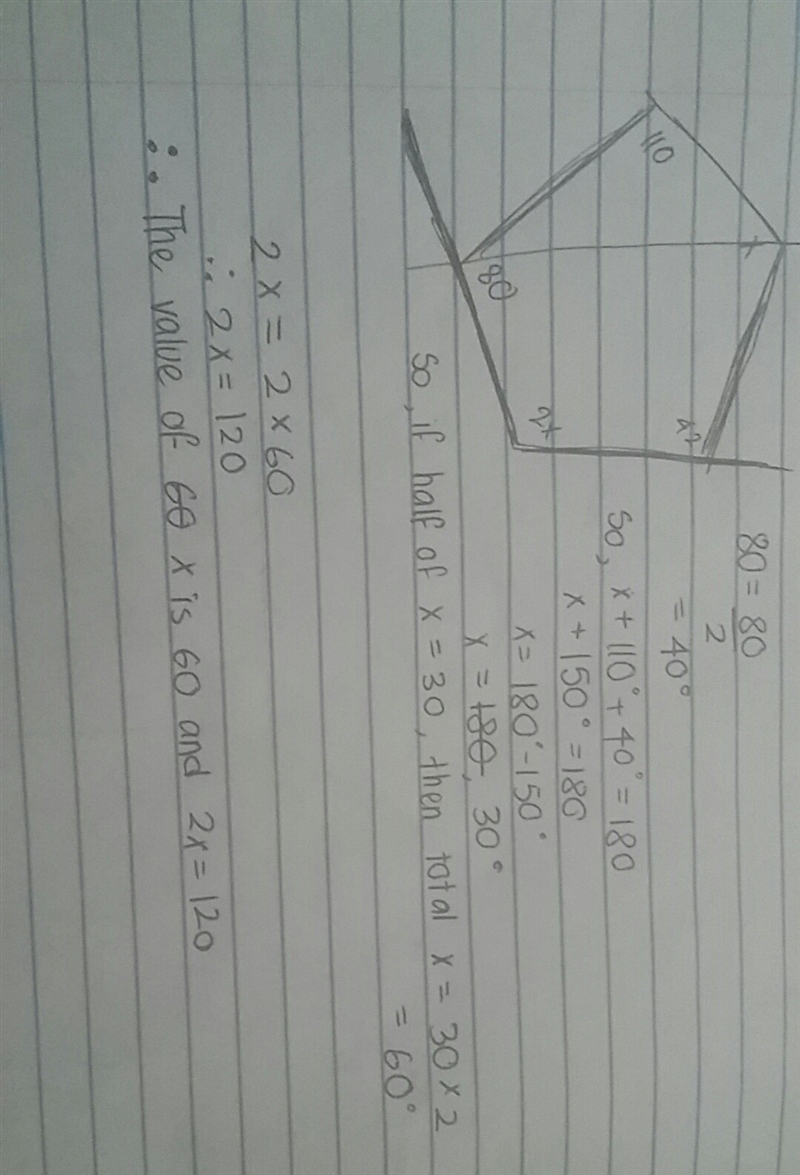 x
x?
110
2x
80
80 = 80
2
= 40°
So, x + 110° + 40° = 180
x + 150° = 180
x = 180° - 150°
x = 180, 30°
So, if half of x = 30, then total x = 30 × 2
= 60°
2x = 2 × 60
∴ 2x = 120
∴ The value of 60 x is 60 and 2x = 120